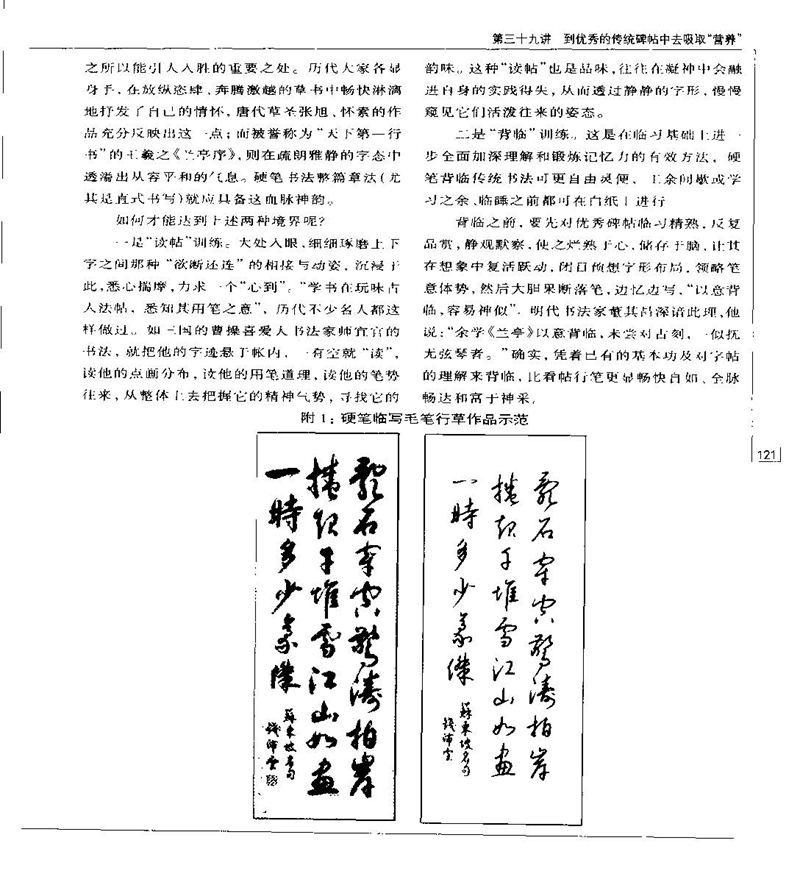 第三十九讲 到优秀的传统碑帖中去吸取“营养”
之所以能引人入胜的重要之处。历代大家各显
身手，在放纵恣肆，奔腾激越的草书中畅快淋漓
地抒发了自己的情怀，唐代草圣张旭、怀素的作
品充分反映出这一点；而被誉称为“天下第一行
书”的王羲之《兰亭序》，则在疏朗雅静的字态中
透溢出从容平和的气息。硬笔书法整篇章法（尤
其是直式书写）就应具备这血脉神韵。
如何才能达到上述两种境界呢？
一是“读帖”训练。大处入眼，细细琢磨上下
字之间那种“欲断还连”的相接与动姿，沉浸于
此，悉心揣摩，力求一个“心到”。“学书在玩味古
人法帖，悉知其用笔之意”，历代不少名人都这
样做过。如三国的曹操喜爱人书法家师宜官的
书法，就把他的字迹悬于帐内，一有空就“读”，
读他的点画分布，读他的用笔道理，读他的笔势
往来，从整体上去把握它的精神气势，寻找它的
韵味。这种“读帖”也是品味，往往在凝神中会融
进自身的实践得失，从而透过静静的字形，慢慢
窥见它们活泼往来的姿态。
二是“背临”训练。这是在临习基础上进一
步全面加深理解和锻炼记忆力的有效方法，硬
笔背临传统书法可更自由灵便，工余间歇或学
习之余、临睡之前都可在白纸上进行
背临之前，要先对优秀碑帖临习精熟，反复
品赏，静观默察，使之烂熟于心，储存于脑，让其
在想象中复活跃动，闭目预想字形布局，领略笔
意体势，然后大胆果断落笔，边忆边写，“以意背
临，容易神似”。明代书法家董其昌深谙此理，他
说：“余学《兰亭》以意背临，未尝对古刻，一似抚
无弦琴者。”确实，凭着已有的基本功及对字帖
的理解来背临，比看帖行笔更显畅快自如、全脉
畅达和富于神采。
附1：硬笔临写毛笔行草作品示范
121
亂石穿空驚濤拍岸
捲起千堆雪江山如畫
一時多少豪傑
蘇東坡名句
錢沛雲
亂石穿空驚濤拍岸
捲起千堆雪江山如畫
一時多少豪傑
蘇東坡名句
錢沛雲